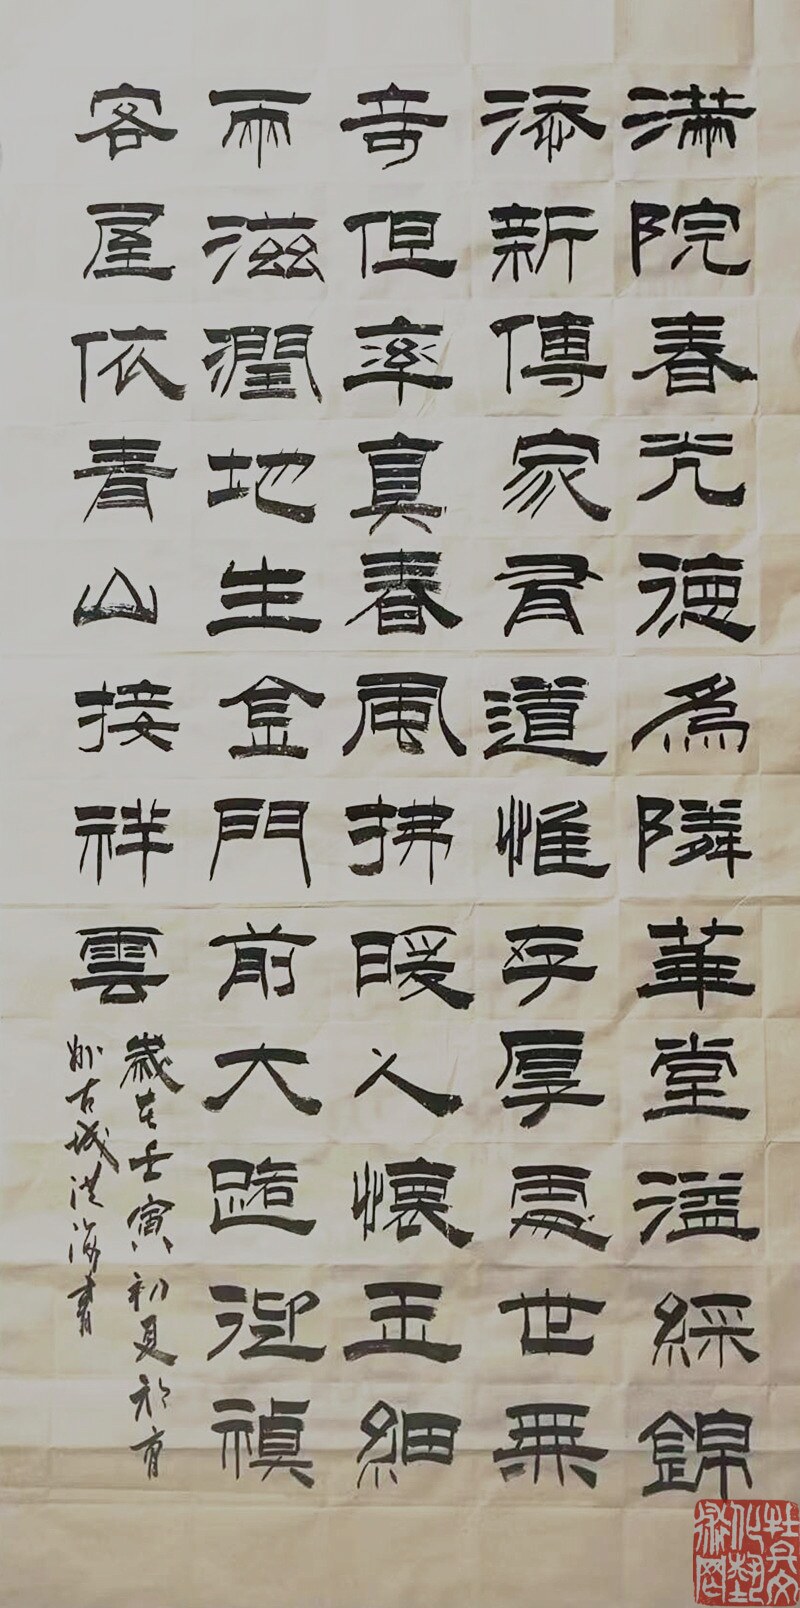 满院春光德為隣華堂溢綵錦
添新傳家有道惟存厚處世無
奇但率真春風拂暖人懷玉細
雨滋潤地生金門前大路迎禎
客屋依青山接祥雲
歲在壬寅初夏於育
古城洪海書